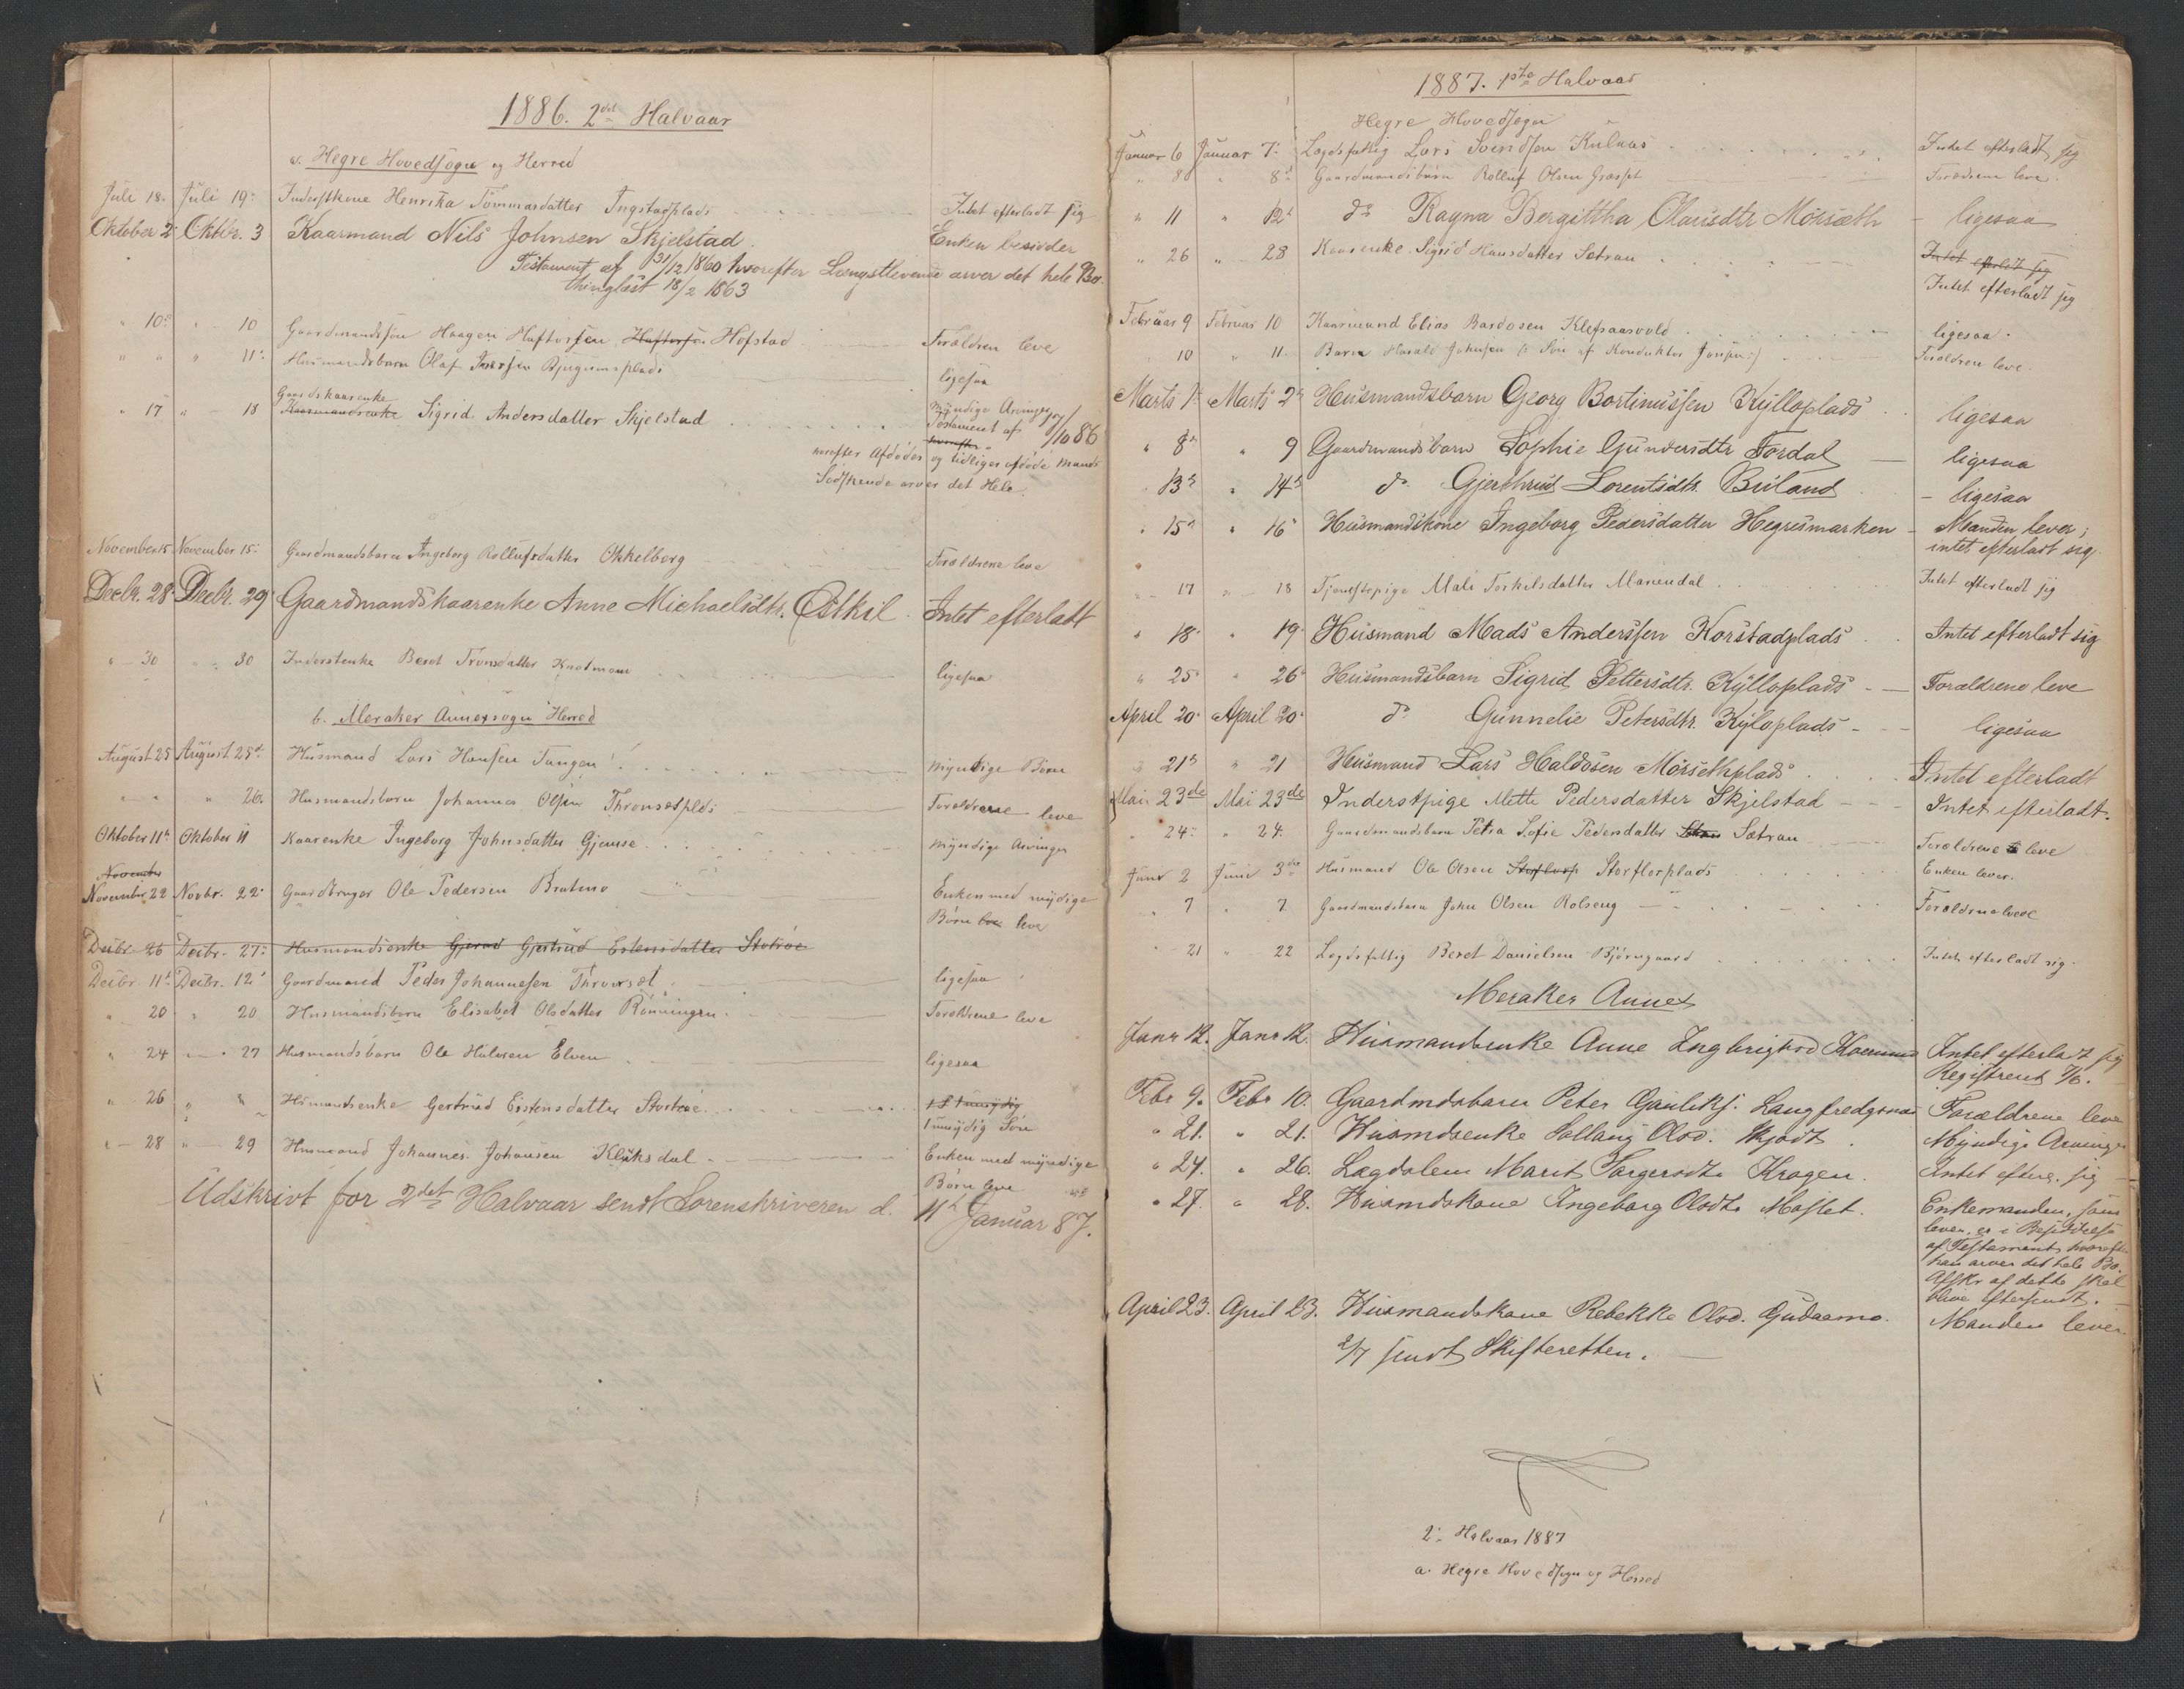 1886. 2det Halvaar
a. Hegre Hovedsogn og Herred
Juli 18. Juli 19. Inderstkone Henrika Tommasdatter Ingstadplads Intet efterladt sig
Oktober 2 Oktbr. 3 Kaarmand Nils Johnsen Skjelstad. Enken besidder
Testament af 31/12 1860 hvorefter Længstlevende arver det hele Bo.
thinglæst 18/2 1863
" 10. " 10 Gaardmandssøn Haagen Haftorsen Haftorsn. Hofstad Forældren leve
" " " 11. Husmandsbarn Olaf Iversen Bjugumsplads ligesaa
Gaardskaarenke
" 17 " 18 Kaarmandsenke Sigrid Andersdatter Skjelstad Myndige Arvinger
Testament af 9/10 86
hvorefter
hvorefter Afdødes og tidligere afdøde Mands
Sødskende arver det Hele.
November 15 November 15. Gaardmandsbarn Ingeborg Rollufsdatter Okkelberg Forældrene leve
Decbr. 28. Decbr. 29. Gaardmandskaarenke Anne Michaelsdtr. Østkil Intet efterladt
" 30 " 30 Inderstenke Beret Tronsdatter ligesaa
b. Meraker Annexsogn Herred
August 25 August 25d. Husmand Lars Hansen Tungen Myndige Børn
" " " 26. Husmandsbarn Johannes Olsen Thronsetplds Forældrene leve
Oktober 11. Oktober 11 Kaarenke Ingeborg Johnsdatter Gjemse Myndige Arvinger
November
November 22 Novbr. 22. Gaardbruger Ole Pedersen Bratmo Enken med myndige
Børn leve
Decbr. 26 Decbr. 27. Husmandsenke Gjerud Gjertrud Estensdatter Storroe
Decbr. 11. Decbr. 12. Gaardmand Peder Johannesen Thronset ligesaa
" 20 " 20. Husmandsbarn Elisabet Olsdatter Rönningen Forældrene leve
" 24 " 27 Husmandsbarn Ole Halvsen Elven ligesaa
" 26 " " Husmandsenke Gertrud Eistensdatter 1 umyndig
1 umyndig Søn
" 28 " 29 Husmand Johannes Johansen Kluksdal Enken med myndige
Børn leve
Udskrivt for 2det Halvaar sendt Sorenskriveren d. 11. Januar 87.
1887. 1ste Halvaar
Hegre Hovedsogn
Januar 6 Januar 7. Lægdsfattig Lars Svendsen Kulaas Intet efterladt sig
" 8 " 8. Gaardmandsbarn Rolluf Olsen Forældrene leve.
" 11 " 12. do Ragna Bergittha Olausdtr Mörsæth ligesaa
" 26 " 28 Kaarenke Sigrid Hansdatter Sætran Intet efterladt sig
Intet efterladt sig
Februar 9 Februar 10 Kaarmand Elias Bardosen Klefsaasvold ligesaa.
" 10 " 11. Barn Harald Johnsen (: Søn af Konduktør Jonsen:) Forældren leve.
Marts 1. Marts 2. Husmandsbarn Georg Bortinussen Kylloplads ligesaa
" 8. " 9 Gaardmandsbarn Sophie Gundersdtr Fordal ligesaa
" 13. " 14. do Gjerthrud Lorentsdtr. Buland ligesaa
" 15. " 16. Husmandskone Ingeborg Pedersdatter Hegresmarken Manden lever;
intet efterladt sig.
" 17 " 18 Tjenestepige Mali Torkilsdatter Mariendal Intet efterladt sig
" 18. " 19. Husmand Mads Anderssen Korstadplads Intet efterladt sig
" 25. " 26. Husmandsbarn Sigrid Pettersdtr. Kylloplads Forældrene leve
April 20. April 20. do Gunnelie Petersdtr. Kyloplads ligesaa
" 21. " 21 Husmand Lars Haldosen Mørsethplads Intet efterladt
Mai 23de Mai 23de Inderstpige Mette Pedersdatter Skjelstad Intet efterladt.
" 24. " 24. Gaardmandsbarn Petra Sofie Pedersdatter Sætran Forældrene leve
Juni 2 Juni 3die Husmand Ole Olsen Storflorp Storflorplads Enken lever.
" 7 " 7 Gaardmandsbarn John Olsen Rolseng Forældrene leve
" 21 " 22 Lægdsfattig Beret Danielsen Björngaard Intet efterladt sig.
Meraker Annex
Janr 12. Janr 12. Husmandsenke Anne Ingbrigtsd Intet efterladt sig
Registrent
Febr 9. Febr 10. Gaardmdsbarn Peter Forældrene leve
" 21. " 21. Husmdsenke Sollaug Olsd. Myndige Arvinger
" 24. " 26. Lægdslem Marit Kragen. Intet efterl. sig
" 27. " 28. Husmdskone Ingeborg Olsdtr Moslet. Enkemanden, som
lever, er i Besiddelse
af Testament, hvorefter
han arver det hele Bo.
Afskr af dette skal
blive eftersendt.
April 23. April 23. Husmandskone Rebekke Olsd. Gudaamo. Manden lever.
2/7 sendt Skifteretten.
2. Halvaar 1887
a. Hegre Hovedsogn og Herred